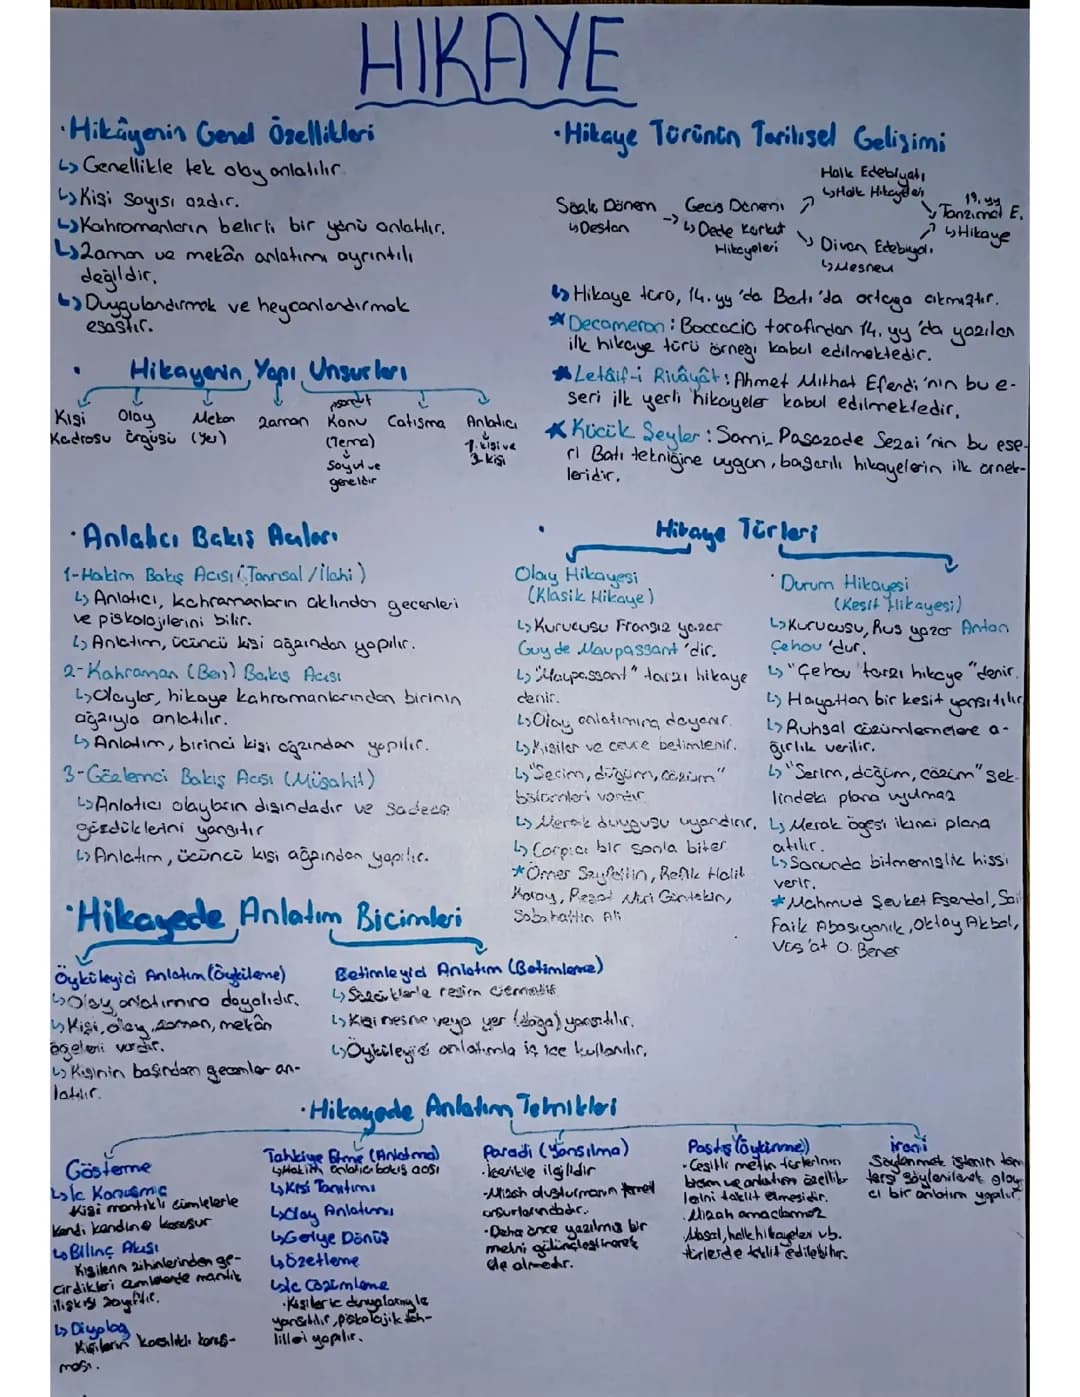 HIKAYE
·Hikâyenin Genel Özellikleri
↳ Genellikle tek olay anlatılır.
↳ Kişi sayısı azdır.
↳ Kahramanların belirli bir yönü anlatılır.
↳ Zaman ve mekân anlatımı ayrıntılı
değildir.
↳ Duygulandırmak ve heycanlandırmak
esastır.
· Hikayenin Yapı Unsurları
Kişi Kadrosu
Olay örgüsü
Mekan (Yer)
Zaman
Konu
(Tema)
↓
Soyut ve
geneldir
Çatışma
Anlatıcı
↓
1. kişi ve
3. kişi
·Hikaye Türünün Tarihsel Gelişimi
Sözlü Dönem
↳ Destan
→
Geçiş Dönemi
↳ Dede Korkut
Hikayeleri
Halk Edebiyatı
↳ Halk Hikayeleri
Divan Edebiyatı
↳ Mesnevi
19. yy
Tanzimat E.
↳ Hikaye
↳ Hikaye türü, 14. yy'da Batı'da ortaya çıkmıştır.
★ Decameron: Boccacio tarafından 14. yy'da yazılan
ilk hikaye türü örneği kabul edilmektedir.
★ Letâif-i Rivâyât: Ahmet Mithat Efendi'nin bu e-
seri ilk yerli hikayeler kabul edilmektedir.
★ Küçük Şeyler: Sami Paşazade Sezai'nin bu ese-
ri Batı tekniğine uygun, başarılı hikayelerin ilk örnek-
leridir.
·Anlatıcı Bakış Açıları
1-Hakim Bakış Açısı (Tanrısal/İlahi)
↳ Anlatıcı, kahramanların aklından geçenleri
ve piskolojilerini bilir.
↳ Anlatım, üçüncü kişi ağzından yapılır.
2-Kahraman (Ben) Bakış Açısı
↳ Olaylar, hikaye kahramanlarından birinin
ağzıyla anlatılır.
↳ Anlatım, birinci kişi ağzından yapılır.
3-Gözlemci Bakış Açısı (Müşahit)
↳ Anlatıcı olayların dışındadır ve sadece
gördüklerini yansıtır
↳ Anlatım, üçüncü kişi ağzından yapılır.
· Hikaye Türleri
Olay Hikayesi
(Klasik Hikaye)
↳ Kurucusu Fransız yazar
Guy de Maupassant'dır.
↳ "Maupassant" tarzı hikaye
denir.
↳ Olay anlatımına dayanır.
↳ Kişiler ve çevre betimlenir.
↳ "Serim, düğüm, çözüm"
bölümleri vardır
↳ Merak duygusu uyandırır.
↳ Çarpıcı bir sonla biter
★ Ömer Seyfettin, Refik Halit
Karay, Reşat Nuri Güntekin,
Sabahattin Ali
· Durum Hikayesi
(Kesit Hikayesi)
↳ Kurucusu, Rus yazar Anton
Çehov'dur.
↳ "Çehov tarzı hikaye" denir.
↳ Hayattan bir kesit yansıtılır
↳ Ruhsal çözümlemelere a-
ğırlık verilir.
↳ "Serim, düğüm, çözüm" şek-
lindeki plana uymaz
↳ Merak ögesi ikinci plana
atılır.
↳ Sonunda bitmemişlik hissi
verir.
★ Mahmud Şevket Esendal, Sait
Faik Abasıyanık, Oktay Akbal,
Vüs'at O. Bener
·Hikayede Anlatım Biçimleri
Öyküleyici Anlatım (Öyküleme)
↳ Olay anlatımına dayalıdır.
↳ Kişi, olay, zaman, mekân
ögeleri vardır.
↳ Kişinin başından geçenler an-
latılır.
Betimleyici Anlatım (Betimleme)
↳ Sözcüklerle resim çizmektir.
↳ Kişi nesne veya yer (doğa) yansıtılır.
↳ Öyküleyici anlatımla iç içe kullanılır.
·Hikayede Anlatım Teknikleri
Gösterme
↳ İç Konuşma
Kişi mantıklı cümlelerle
kendi kendine konuşur
↳ Bilinç Akışı
Kişilerin zihinlerinden ge-
çirdikleri cümlelerde mantık
ilişkisi zayıftır.
↳ Diyalog
Kişilerin karşılıklı konuş-
ması.
Tahkiye Etme (Anlatma)
↳ Hakim anlatıcı bakış açısı
↳ Kişi Tanıtımı
↳ Olay Anlatımı
↳ Geriye Dönüş
↳ Özetleme
↳ İç Çözümleme
·Kişiler iç dünyalarıyla
yansıtılır, piskolojik tah-
lilleri yapılır.
Parodi (Yansılma)
·İçerikle ilgilidir
·Mizah oluşturmanın temel
unsurlarındandır.
·Daha önce yazılmış bir
metni gülünçleştirerek
ele almadır.
Pastiş (Öykünme)
·Çeşitli metin türlerinin
biçim ve anlatım özellik-
lerini taklit etmesidir.
·Mizah amaçlanmaz
·Masal, halk hikayeleri vb.
türlerde taklit edilebilir.
İroni
Söylenmek istenin tam
tersi söylenilerek alay-
cı bir anlatım yapılır